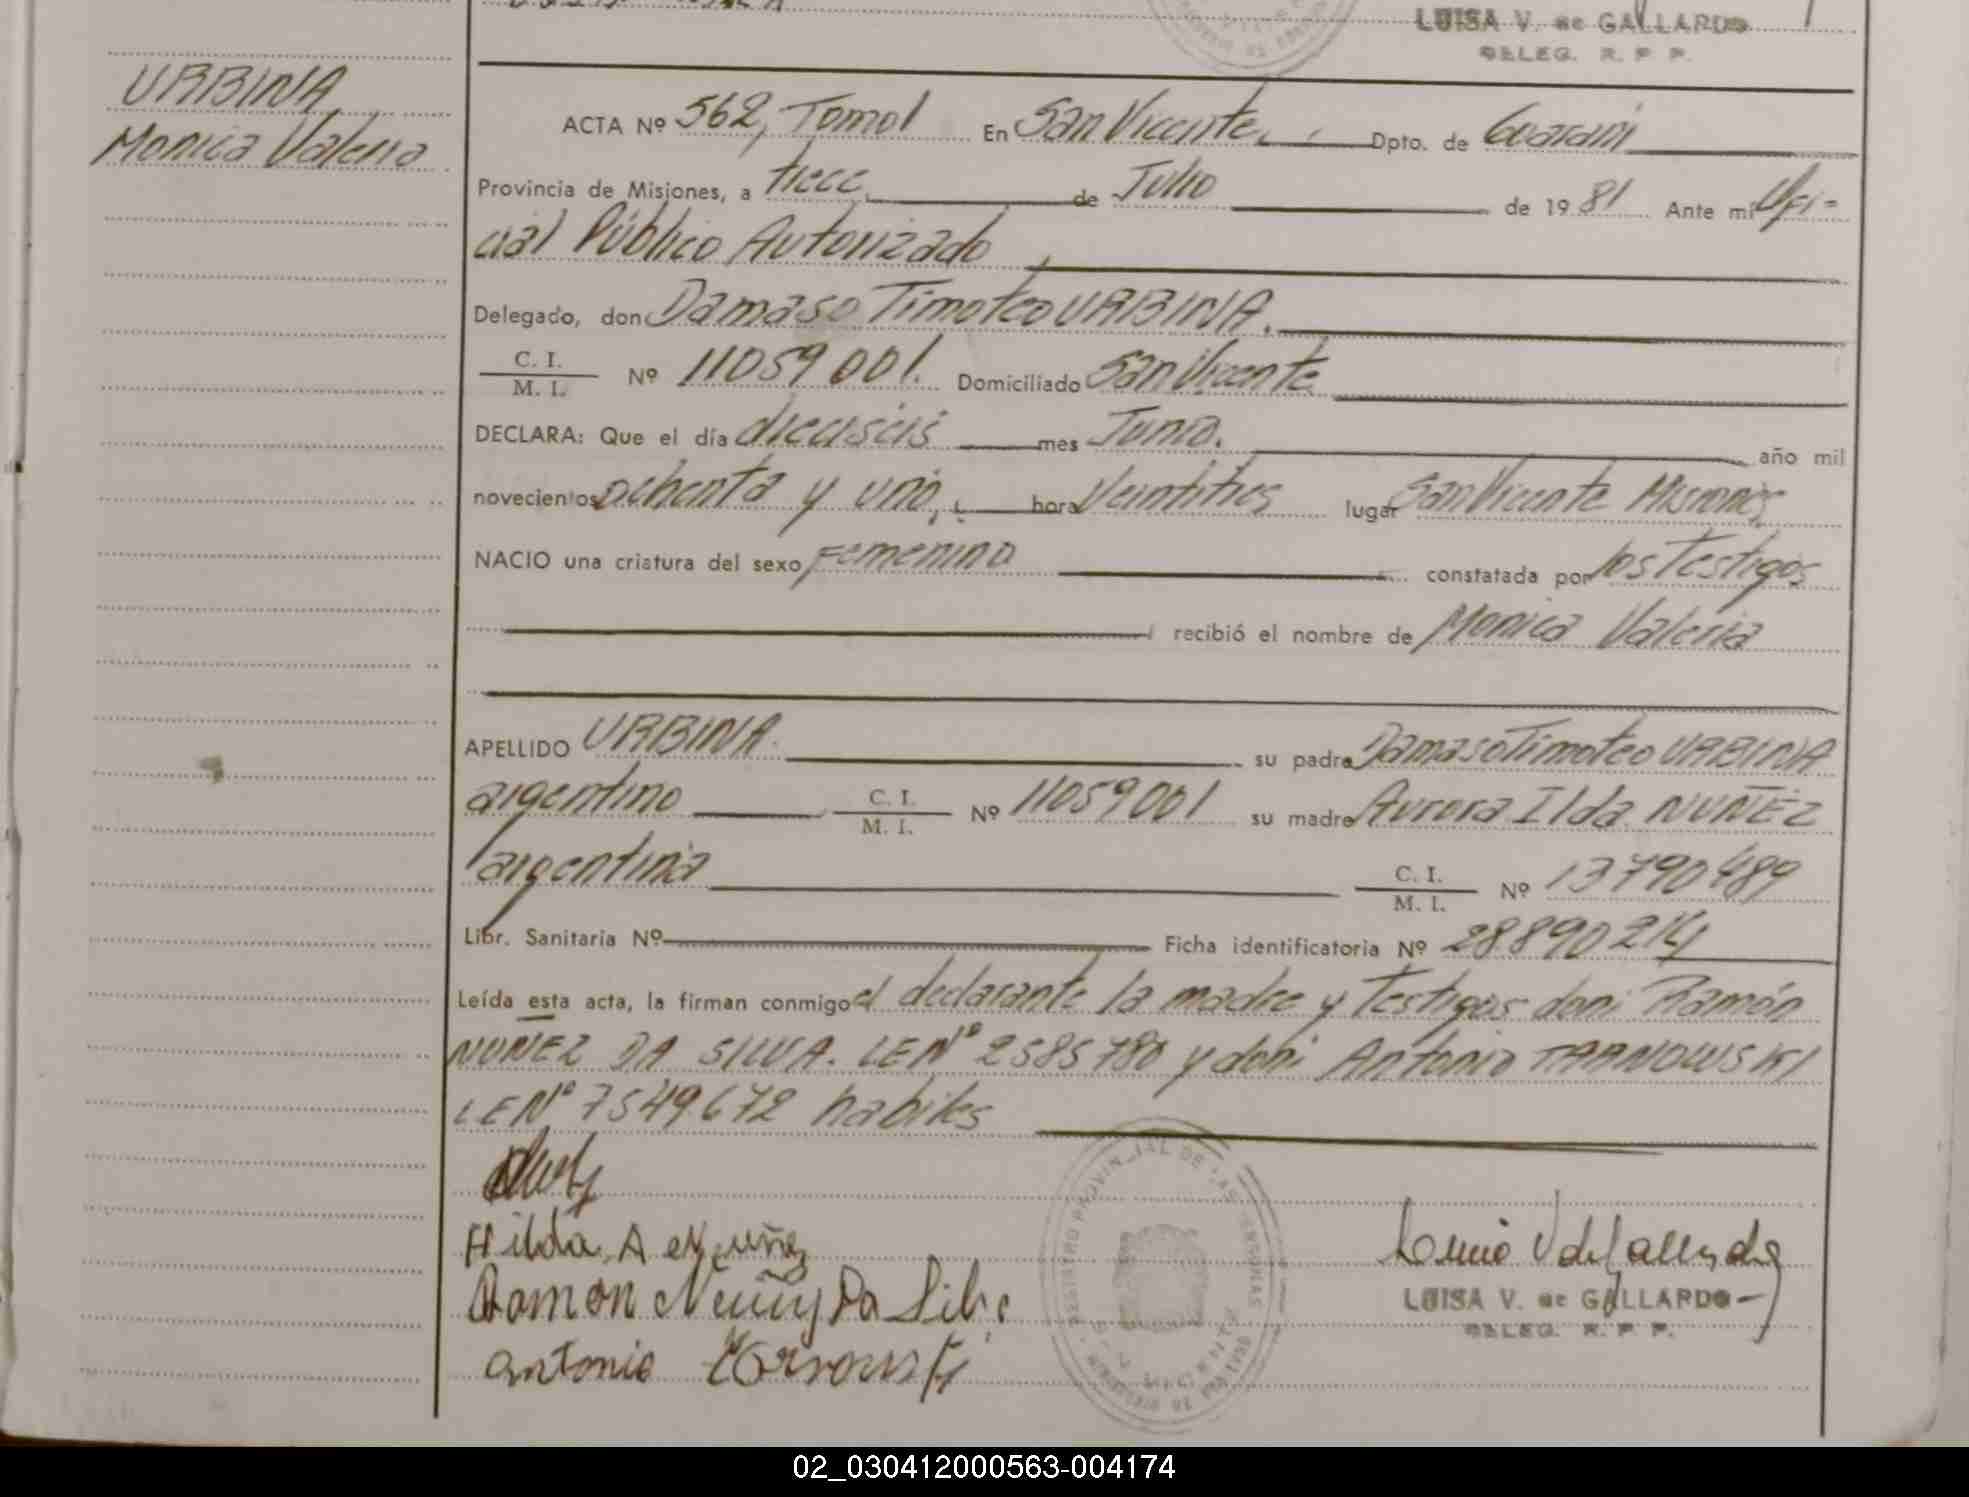 LUISA V. de GALLARDO
DELEG. R. P. P.
URBINA
Monica Valeria
ACTA Nº 562, Tomo I En San Vicente Dpto. de Guaraní
Provincia de Misiones, a trece de Julio de 1981 Ante mi Ofi-
cial Público Autorizado
Delegado, don Damaso Timoteo URBINA.
C. I.
M. I. Nº 11059001. Domiciliado San Vicente
DECLARA: Que el día dieciseis mes Junio. año mil
novecientos ochenta y uno, hora Veintitres lugar San Vicente Misiones
NACIO una criatura del sexo Femenino constatada por los Testigos
recibió el nombre de Monica Valeria
APELLIDO URBINA su padre Damaso Timoteo URBINA
argentino C. I. M. I. Nº 11059001 su madre Aurora Ilda NUÑEZ
argentina C. I. M. I. Nº 13790489
Libr. Sanitaria Nº Ficha identificatoria Nº 28890214
Leída esta acta, la firman conmigo el declarante la madre y Testigos don: Ramón
NUÑEZ DA SILVA. LE Nº 2585780 y don: Antonio TARNOWSKI
LE Nº 7549.672 habiles
Hilda A de Nuñez
Ramon Nuñez Da Silva
Antonio Tarnowski
REGISTRO PROVINCIAL DE LAS PERSONAS
SAN VICENTE
LUISA V. de GALLARDO
DELEG. R. P. P.
02_030412000563-004174